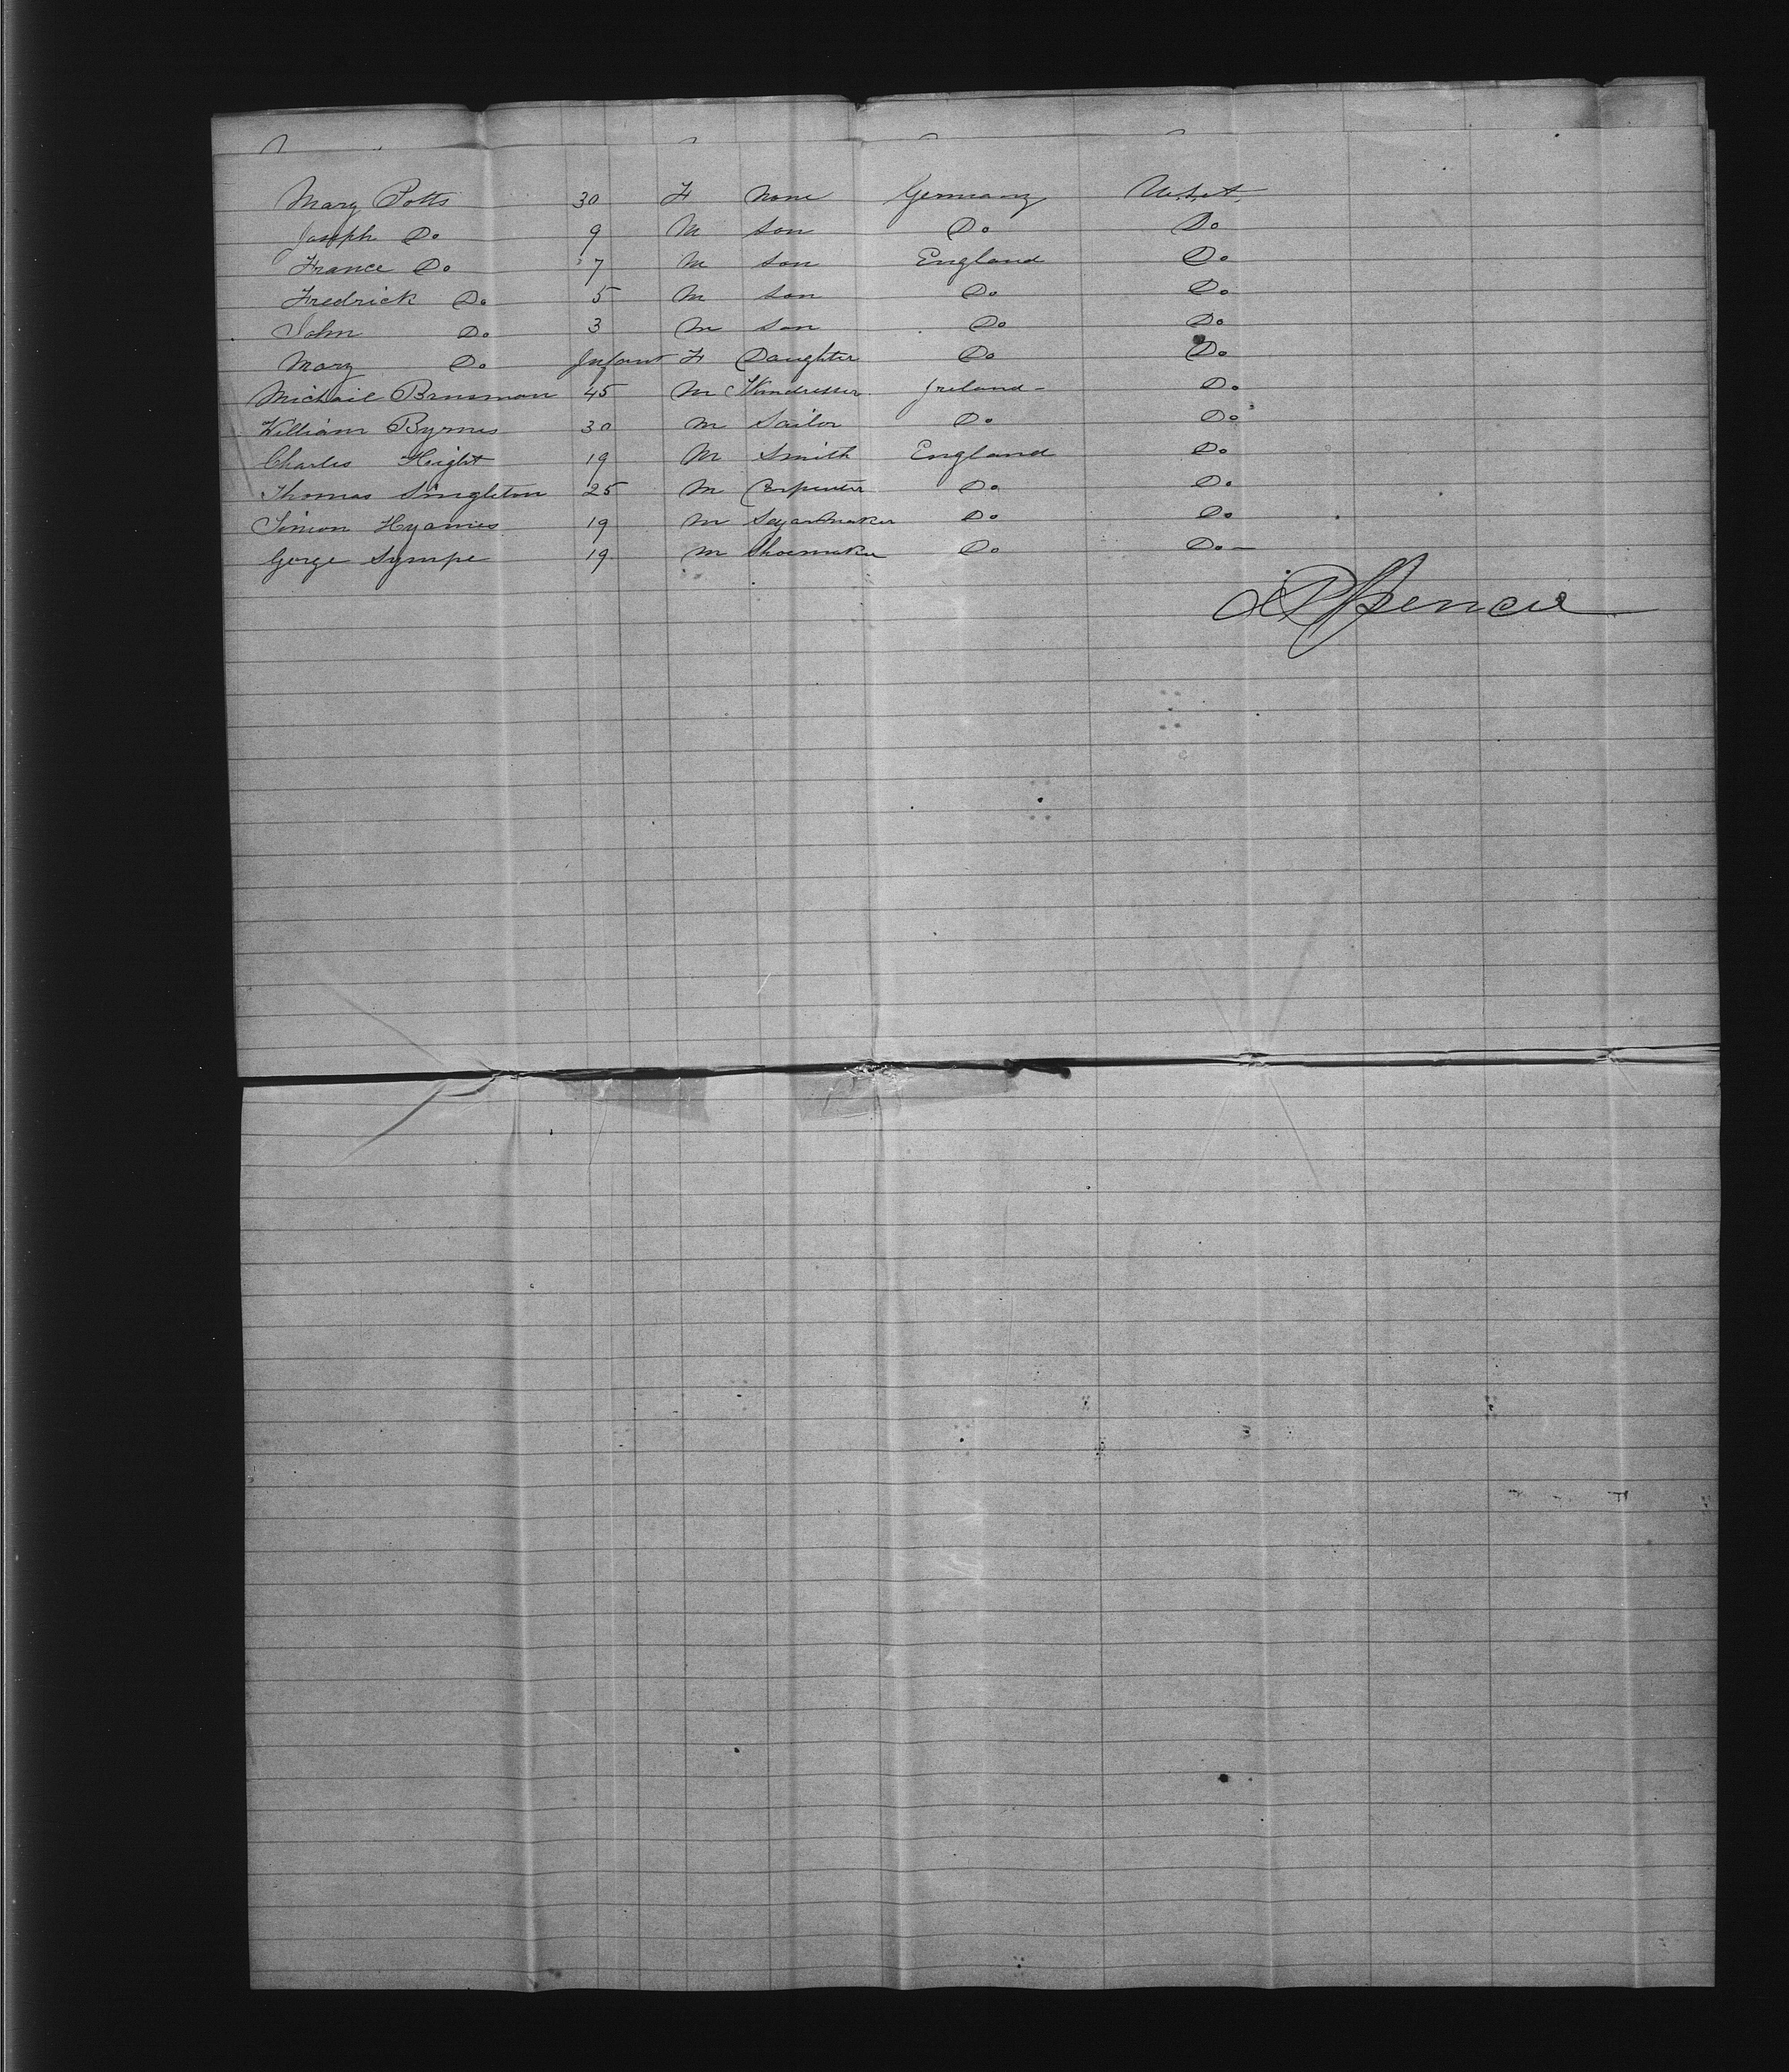 Mary Potts 30 F None Germany U.S.A.
Joseph Do 9 M son Do Do
France Do 7 M son England Do
Fredrick Do 5 M son Do Do
John Do 3 M son Do Do
Mary Do Infant F Daughter Do Do
Michail 45 M Ireland Do
William Byrnes 30 M Sailor Do Do
Charles Height 19 M Smith England Do
Thomas Singleton 25 M Carpenter Do Do
Simon Hyames 19 M Segar Maker Do Do
Gorge Sympe 19 M Shoemaker Do Do
Spencer